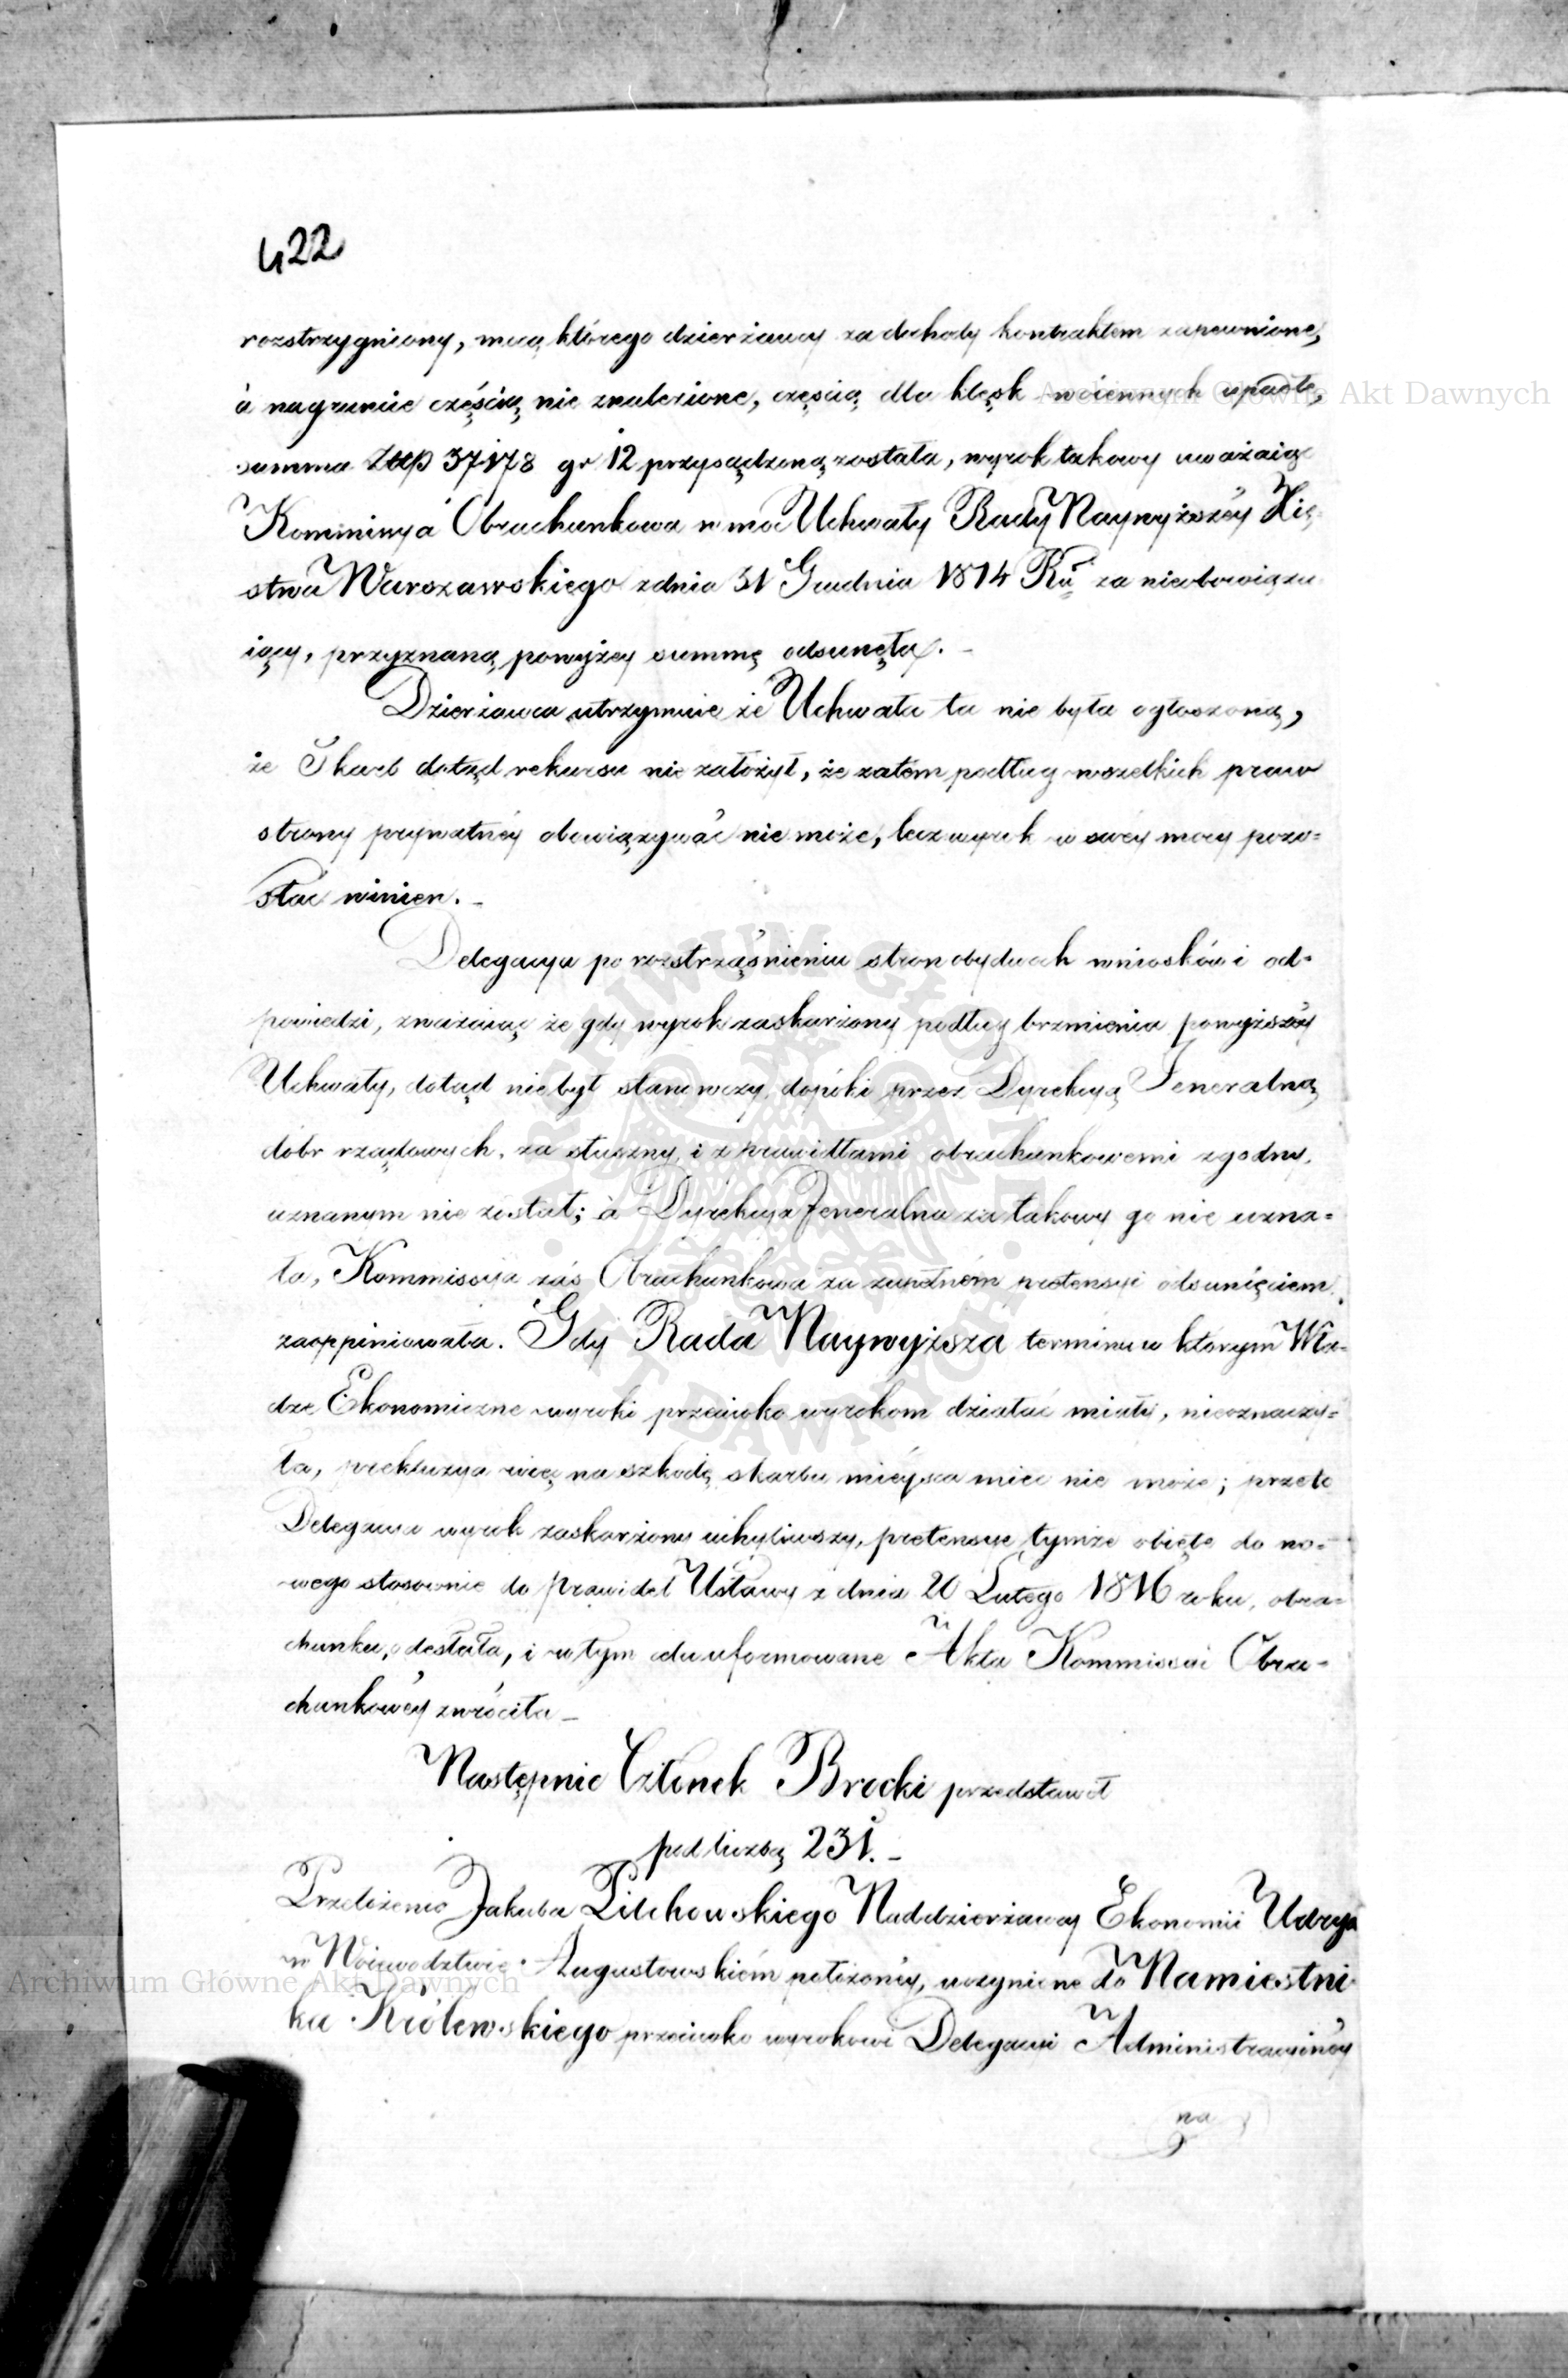 422
rozstrzygniony, mocą którego dzierżawcy za dochody kontraktem zapewnione,
à nagruncie częścią nie znalezione, częścią dla klęsk woiennych upadłe,
summa Złłp 37178 gr 12 przysądzoną została, wyrok takowy uważaiąc
Kommissya Obrachunkowa w moc Uchwały Rady Naywyższéy Xię-
stwa Warszawskiego zdnia 31 Grudnia 1814 Ru za nieobowiązu
iący, przyznaną powyżey summę odsunęła. –
Dzierżawca utrzymuie że Uchwała ta nie była ogłoszoną,
że Skarb dotąd rekursu nie założył, że zatem podług wszelkich praw
strony prywatnéy obowiązywać nie może, lecz wyrok w swéy mocy pozo=
stać winien. –
Delegacya po rozstrząśnieniu stron obydwóch wniosków i od=
powiedzi, zważaiąc że gdy wyrok zaskarżony podług brzmienia powyższéy
Uchwały, dotąd niebył stanowczy, dopóki przez Dyrekcyą Jeneralną
dóbr rządowych, za słuszny i z prawidłami obrachunkowemi zgodny,
uznanym nie został; à Dyrekcya Jeneralna za takowy go nie uzna=
ła, Kommissya zaś Obrachunkowa za zupełném pretensyi odsunięciem
zaoppiniowała. Gdy Rada Naywyższa terminu w którym Wła=
dze Ekonomiczne wyroki przeciwko wyrokom działać miały, nieoznaczy=
ła, prekluzya więc na szkodę skarbu mieysca mieć nie może; przeto
Delegacya wyrok zaskarżony uchyliwszy, pretensye tymże obięte do no=
wego stosownie do prawideł Ustawy z dnia 20 Lutego 1816 roku, obra=
chunku, odesłała, i w tym celu uformowane Akta Kommissyi Obra=
chunkowéy zwróciła –
Następnie Członek Brocki przedstawił
pod liczbą 231. –
Przełożenie Jakuba Pilchowskiego Naddzierżawcy Ekonomii Udrya
w Woiewodztwie Augustowskiém położonéy, uczynione do Namiestni
ka Królewskiego przeciwko wyrokowi Delegacyi Administracyinéy
na
Archiwum Główne Akt Dawnych
Archiwum Główne Akt Dawnych
ARCHIWUM GŁÓWNE AKT DAWNYCH